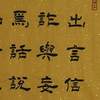 出言信
詐與妄
焉話說